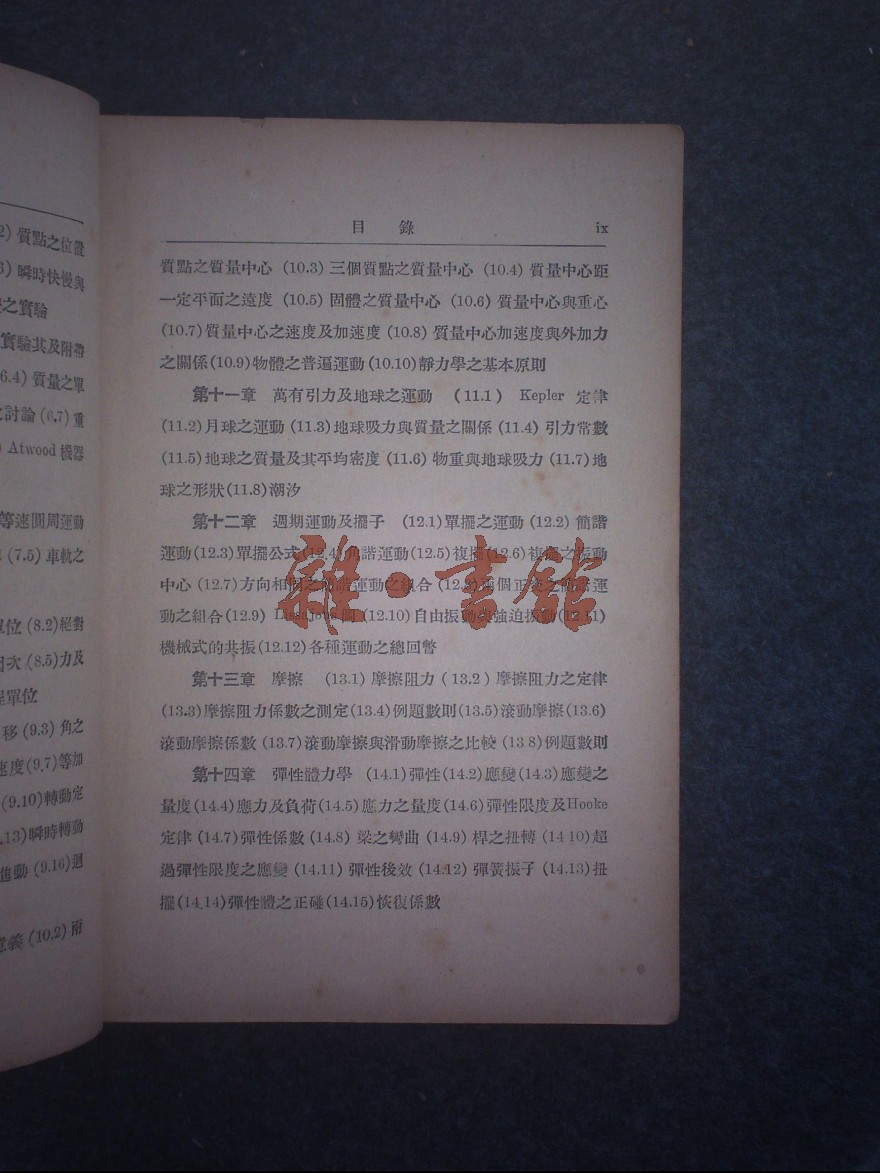 2) 質點之位置
3) 瞬時快慢與
之實驗
實驗其及附帶
6.4) 質量之單
討論 (6.7) 重
) Atwood 機器
等速圓周運動
(7.5) 車軌之
單位 (8.2)絕對
因次 (8.5)力及
單位
移 (9.3) 角之
速度(9.7)等加
(9.10)轉動定
.13)瞬時轉動
進動 (9.16)迴
意義 (10.2) 兩
目錄 ix
質點之質量中心 (10.3) 三個質點之質量中心 (10.4) 質量中心距
一定平面之遠度 (10.5) 固體之質量中心 (10.6) 質量中心與重心
(10.7)質量中心之速度及加速度 (10.8) 質量中心加速度與外加力
之關係(10.9)物體之普遍運動(10.10)靜力學之基本原則
第十一章 萬有引力及地球之運動 (11.1) Kepler 定律
(11.2)月球之運動 (11.3)地球吸力與質量之關係 (11.4) 引力常數
(11.5)地球之質量及其平均密度 (11.6) 物重與地球吸力 (11.7)地
球之形狀(11.8)潮汐
第十二章 週期運動及擺子 (12.1)單擺之運動 (12.2) 簡諧
運動(12.3)單擺公式(12.4) 諧運動(12.5)複擺(12.6)複擺之振動
中心 (12.7)方向相同之簡諧運動之組合 (12.8)兩個正交之簡諧運
動之組合(12.9) Lissajous 圖 (12.10)自由振動與強迫振動(12.11)
機械式的共振(12.12)各種運動之總回幣
第十三章 摩擦 (13.1) 摩擦阻力 (13.2) 摩擦阻力之定律
(13.3)摩擦阻力係數之測定(13.4)例題數則(13.5)滾動摩擦(13.6)
滾動摩擦係數 (13.7)滾動摩擦與滑動摩擦之比較 (13 8)例題數則
第十四章 彈性體力學 (14.1)彈性(14.2)應變(14.3)應變之
量度(14.4)應力及負荷(14.5)應力之量度(14.6)彈性限度及Hooke
定律 (14.7)彈性係數 (14.8) 梁之彎曲 (14.9) 桿之扭轉 (14 10)超
過彈性限度之應變 (14.11) 彈性後效 (14.12) 彈簧振子 (14.13)扭
擺(14.14)彈性體之正碰(14.15)恢復係數
雜·書館